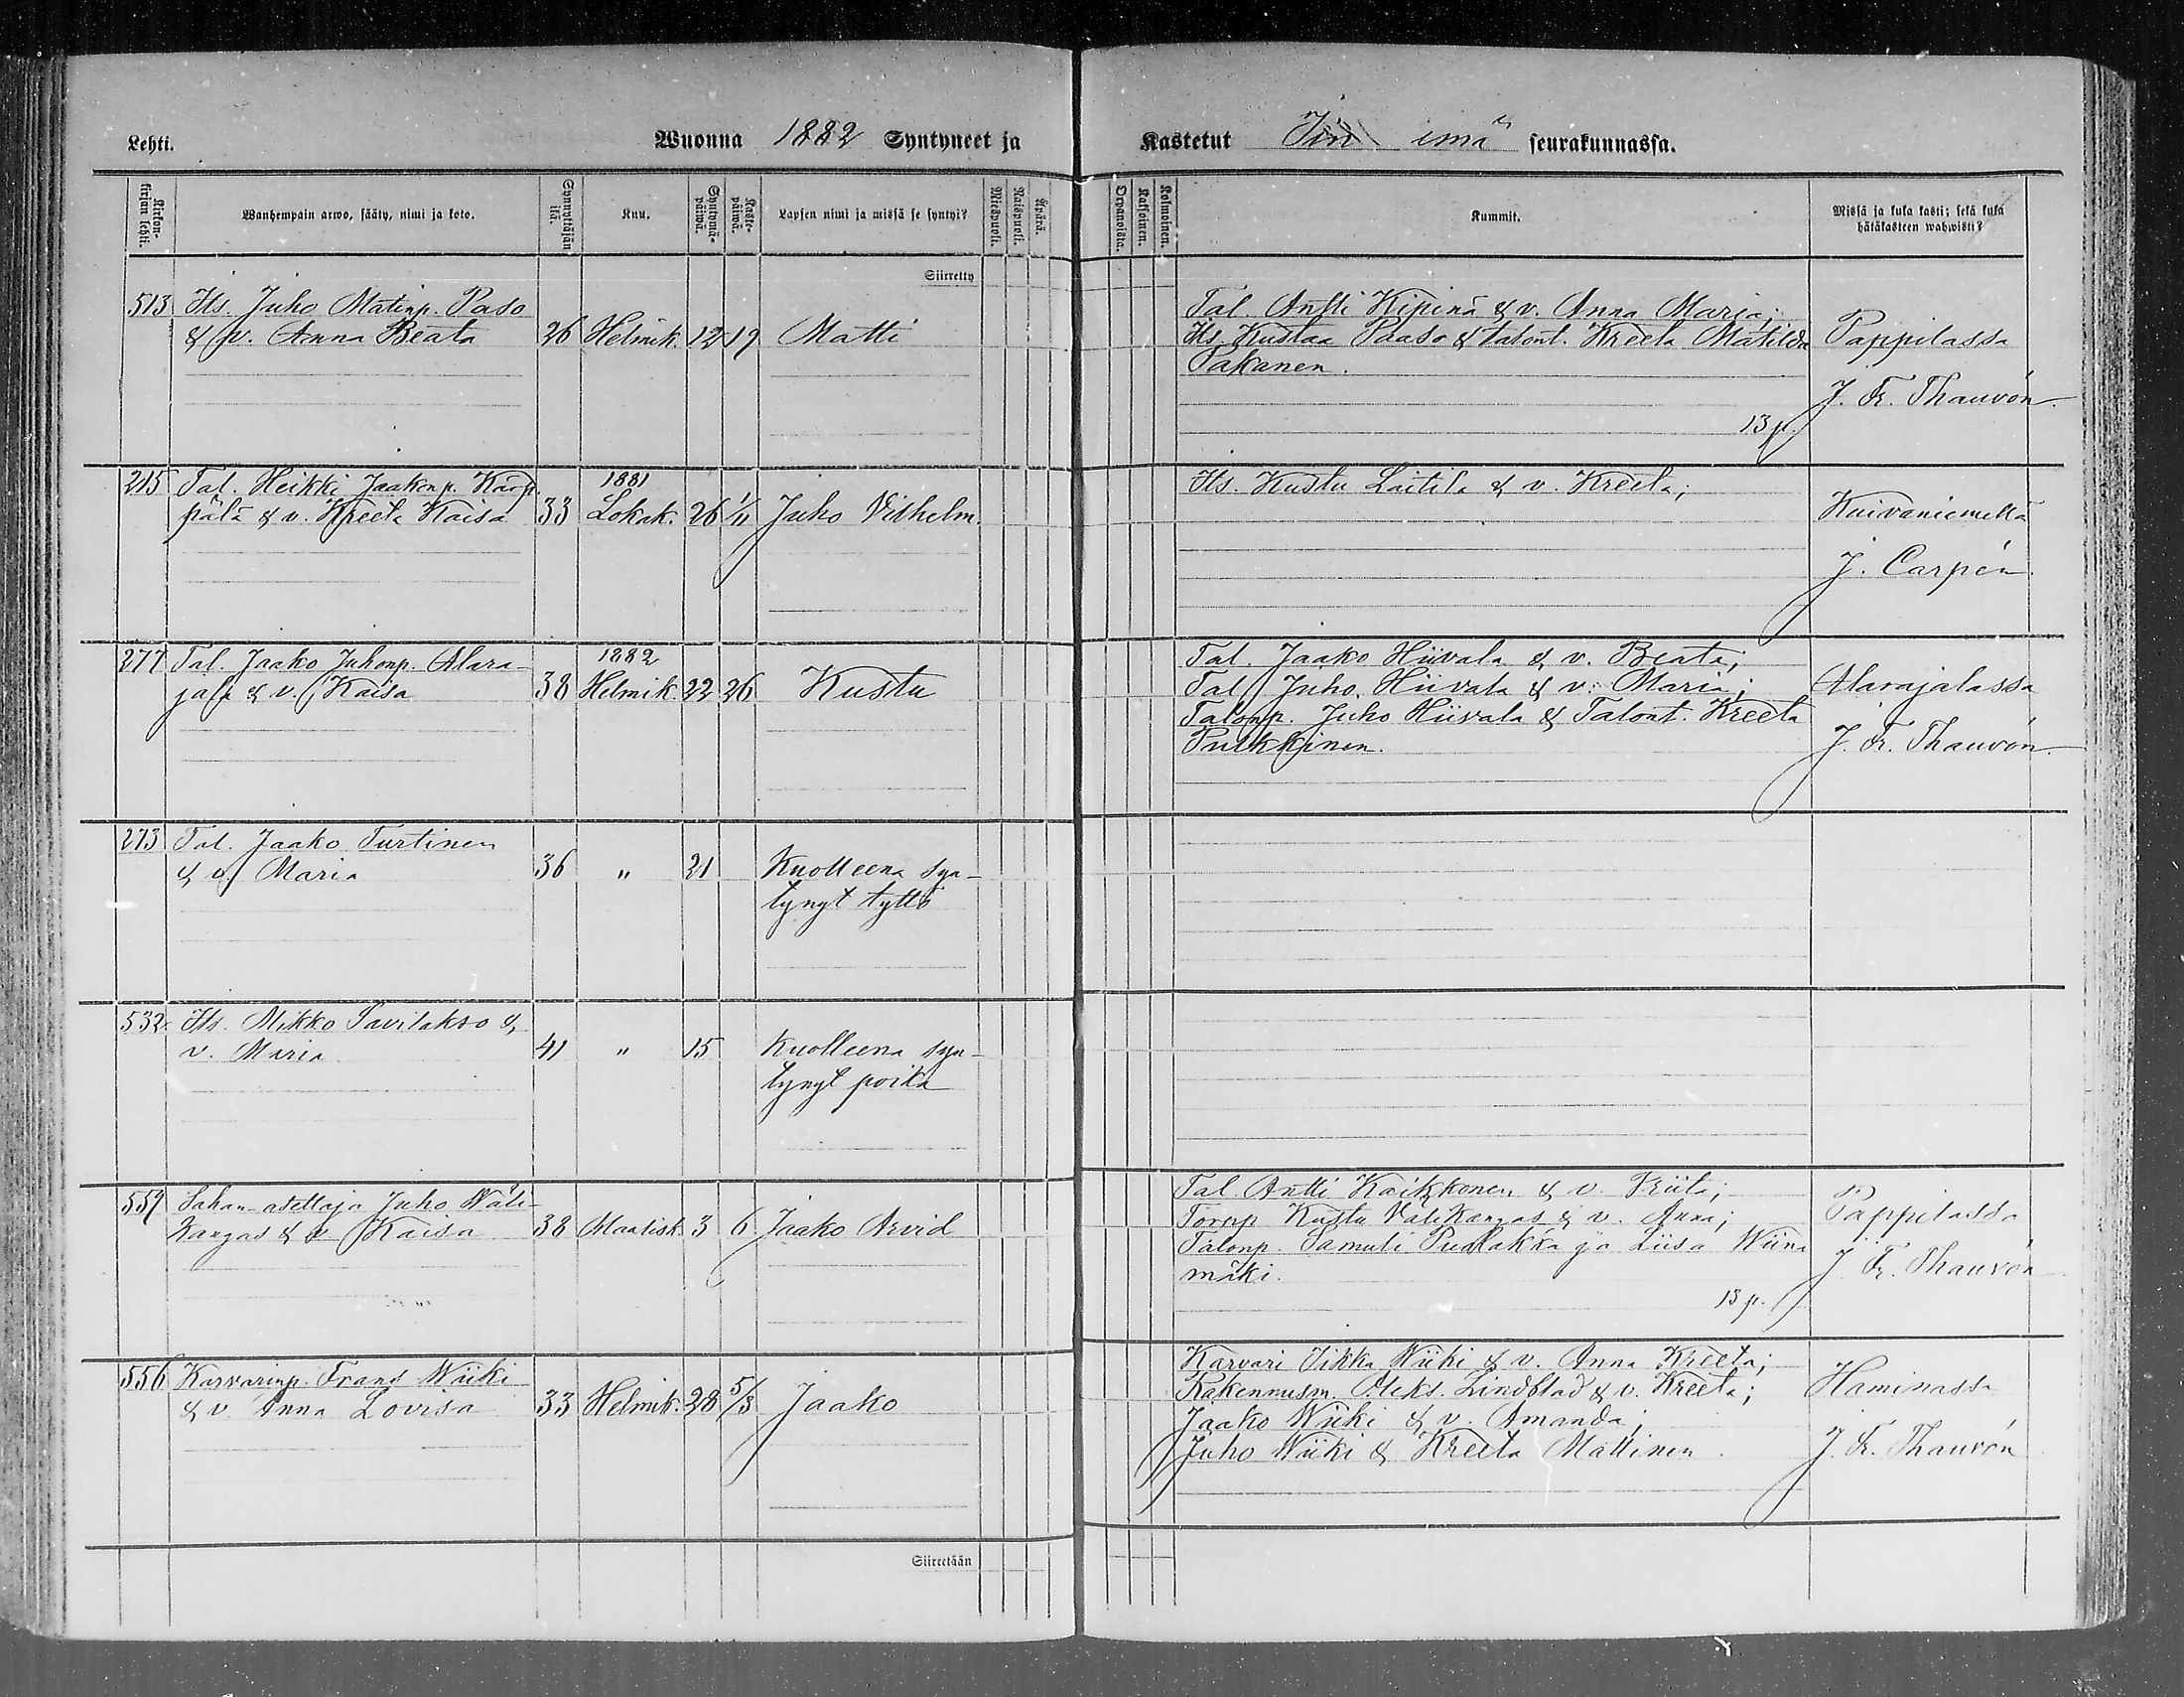 Lehti.
Wuonna 1882 Syntyneet ja
Kastetut Iin emä seurakunnassa.
Ristonkirjan lehti.
Wanhempain arwo, sääty, nimi ja koto.
Synnyttäjän ikä.
Kuu.
Syntymäpäiwä.
Kastepäiwä.
Lapsen nimi ja missä se syntyi?
Miespuoli.
Waispuoli.
Äpärä.
Orpanoista.
Kaksoinen.
Kolmoinen.
Kummit.
Missä ja kuka kasti; sekä kuka
hätäkasteen wahwisti?
Siirretty
513 Its. Juho Matinp. Paso
& v. Anna Beata 26 Helmik. 12 19 Matti
Tal. Antti Kipinä & v. Anna Maria;
Its. Kustaa Paaso & talont. Kreeta Matilda
Pakanen.
13 p.
Pappilassa
J. Fr. Thauvón
215 Tal. Heikki Jaakonp. Kärp
pälä & v. Kreeta Kaisa 33 1881 Lokak. 26 1/11 Juho Vilhelm.
Its. Kustu Laitila & v. Kreeta;
Kuivaniemellä
J. Carpén
277 Tal. Jaako Juhonp. Alara-
jala & v. Kaisa 38 1882 Helmik. 22 26 Kustu
Tal. Jaako Hiivala & v. Beata;
Tal. Juho Hiivala & v. Maria;
Talonp. Juho Hiivala & Talont. Kreeta
Pulkkinen.
Alarajalassa
J. Fr. Thauvón
273 Tal. Jaako Turtinen
& v. Maria 36 " 21 Kuolleena syn-
tynyt tyttö
532 Its. Mikko Savilakso &
v. Maria 41 " 15 Kuolleena syn-
tynyt poika
559 Sahan-asettaja Juho Wäli-
kangas & v. Kaisa 38 Maalisk. 3 6 Jaako Arvid
Tal. Antti Kaikkonen & v. Priita;
Torpp Kustu Välikangas & v. Anna;
Talonp. Samuli Pudakka ja Liisa Wiina
mäki.
13 p.
Pappilassa
J. Fr. Thauvón
556 Karvarinp. Frans Wiiki
& v. Anna Lovisa 33 Helmik. 28 5/3 Jaako
Karvari Iikka Wiiki & v. Anna Kreeta;
Rakennusm. Aleks. Lindblad & v. Kreeta;
Jaako Wiiki & v. Amanda;
Juho Wiiki & Kreeta Mattinen.
Haminassa
J. Fr. Thauvón
Siirretään